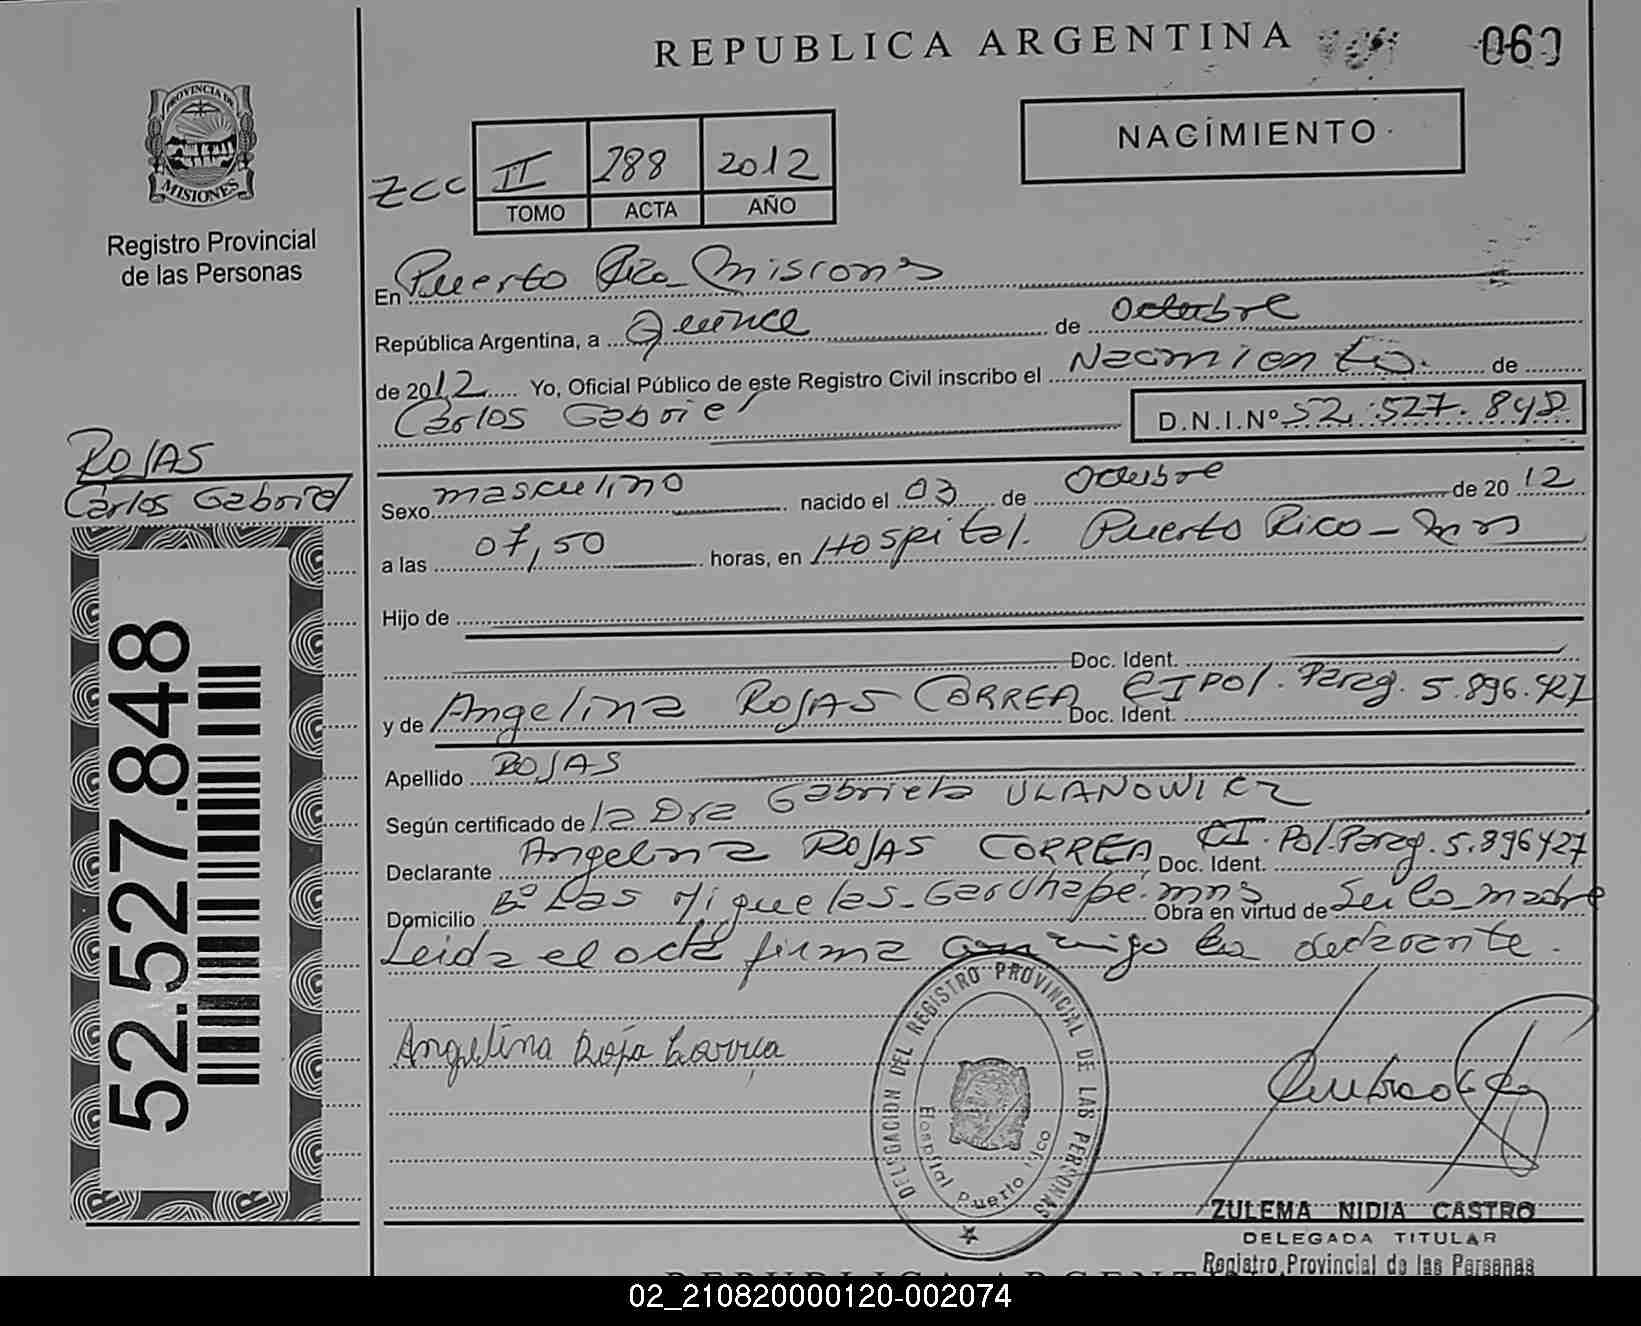 REPUBLICA ARGENTINA
060
PROVINCIA DE
MISIONES
Registro Provincial
de las Personas
NACÍMIENTO
ZCC II 288 2012
TOMO ACTA AÑO
En Puerto Rico Misiones
República Argentina, a Quince de Octubre
de 2012 Yo, Oficial Público de este Registro Civil inscribo el Nacimiento de
Carlos Gabriel D.N.I.Nº 52.527.848
ROJAS
Carlos Gabriel
52.527.848
Sexo masculino nacido el 03 de Octubre de 2012
a las 07,50 horas, en Hospital. Puerto Rico - Mns
Hijo de
Doc. Ident.
y de Angelina ROJAS CORREA Doc. Ident. CIPol. Parag. 5.896.427
Apellido ROJAS
Según certificado de la Dra Gabriela ULANOWICZ
Declarante Angelina ROJAS CORREA Doc. Ident. CI. Pol. Parag. 5.896427
Domicilio Bº Las Migueles - Garuhape. mns Obra en virtud de Ser la madre
Leida el acta firma conmigo la declarante.
Angelina Roja Correa
DELEGACION DEL REGISTRO PROVINCIAL DE LAS PERSONAS
Hospital Puerto Rico
ZULEMA NIDIA CASTRO
DELEGADA TITULAR
Registro Provincial de las Personas
REPUBLICA ARGENT
02_210820000120-002074